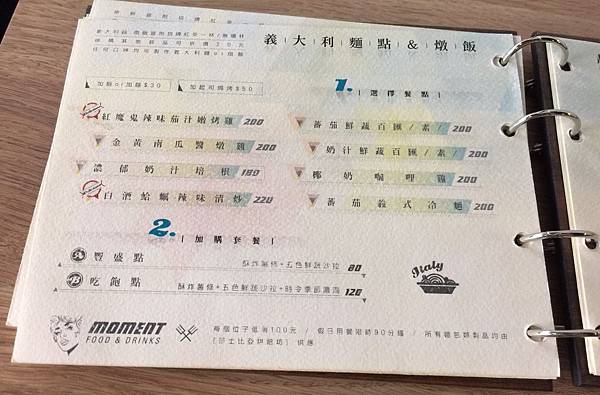 義大利麵點&燉飯
加飯or加麵$30
加起司焗烤$50
1.
選擇餐點
紅魔鬼辣味茄汁嫩烤雞 200
金黃南瓜醬燉雞 200
濃郁奶汁培根 180
白酒蛤蠣辣味清炒 220
蕃茄鮮蔬百匯/素/ 200
奶汁鮮蔬百匯/素/ 200
椰奶咖哩雞 200
蕃茄義式冷麵 200
2.
加購套餐
A 豐盛點 酥炸薯條+五色鮮蔬沙拉 80
B 吃飽點 酥炸薯條+五色鮮蔬沙拉+時令季節濃湯 120
Italy
MOMENT
FOOD & DRINKS
每個位子低消100元 / 假日用餐限時90分鐘 / 所有麵包類製品均由
[莎士比亞烘焙坊] 供應